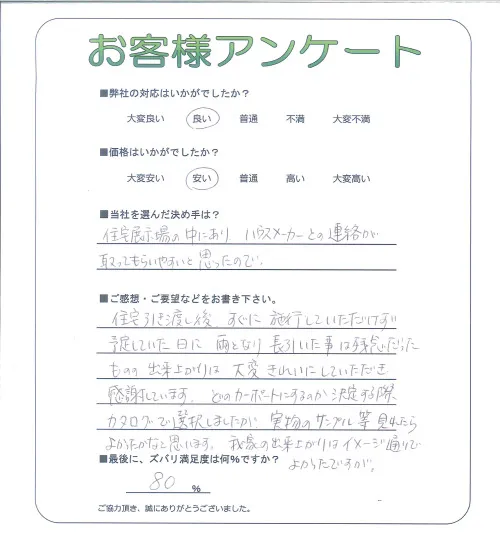 お客様アンケート
■弊社の対応はいかがでしたか?
大変良い 良い 普通 不満 大変不満
■価格はいかがでしたか?
大変安い 安い 普通 高い 大変高い
■当社を選んだ決め手は?
住宅展示場の中にあり、ハウスメーカーとの連絡が
取ってもらいやすいと思ったので。
■ご感想・ご要望などをお書き下さい。
住宅引き渡し後、すぐに施行していただけず
予定していた日に雨となり長引いた事は残念だった
ものの出来上がりは大変きれいにしていただき
感謝しています。どのカーポートにするのか決定する際、
カタログで選択しましたが、実物のサンプル等見れたら
よかったかなと思います。我家の出来上がりはイメージ通りで
よかったですが。
■最後に、ズバリ満足度は何%ですか?
80 %
ご協力頂き、誠にありがとうございました。